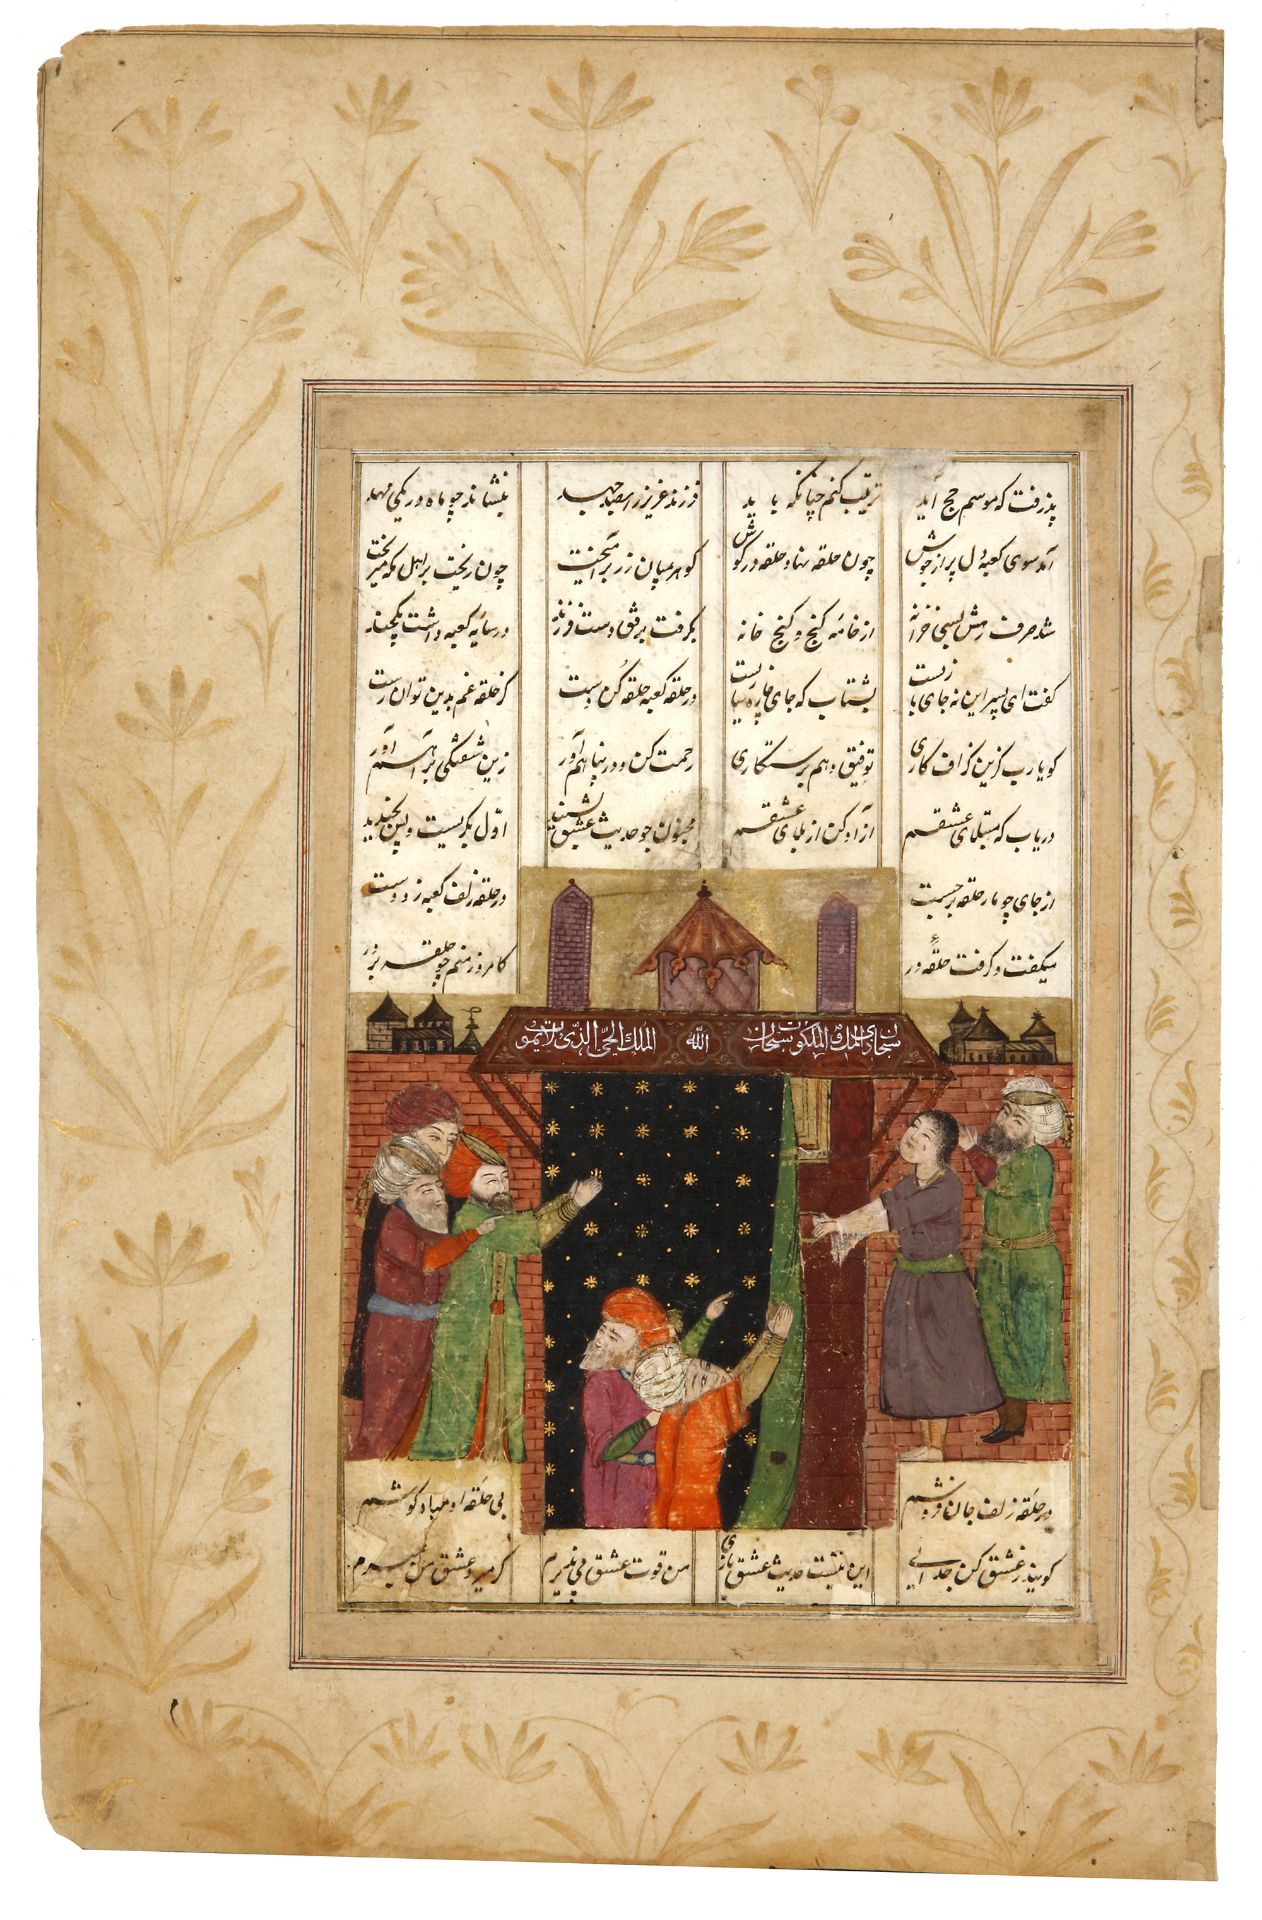 پذرفت که موسم حج آید ترتیب کنم چنانکه باید فرزند عزیز را بصد جهد بنشاند چو ماه در یکی مهد
آمد سوی کعبه دل پر از جوش چون حلقه نهاد حلقه در گوش گوهر بمیان زر برآمیخت چون ریخت بر اهل مکه میریخت
شد صرف رهش بسی خزانه از خامه گنج و گنج خانه بگرفت برفق دست فرزند در سایه کعبه داشت یکچند
گفت ای پسر این نه جای بازیست بشتاب که جای چاره سازیست در حلقه کعبه حلقه کن دست کز حلقه غم بدین توان رست
گو یارب کزین گزاف کاری توفیق دهم برستگاری رحمت کن و در پناهم آور زین شیفتگی براهم آور
دریاب که مبتلای عشقم آزاد کن از بلای عشقم مجنون چو حدیث عشق بشنید اول بگریست و پس بخندید
از جای چو مار حلقه برجست در حلقه زلف کعبه زد دست
میگفت و گرفت حلقه در کامروز منم چو حلقه بر در
سبحان ذی الملک و الملکوت سبحان الله الملک الحی الذی لایموت
در حلقه زلف جان فروشم بی حلقه او مباد گوشم
گویند ز عشق کن جدایی این نیست حدیث عشق بازی من قوت عشق می پذیرم گر میرد عشق من بمیرم